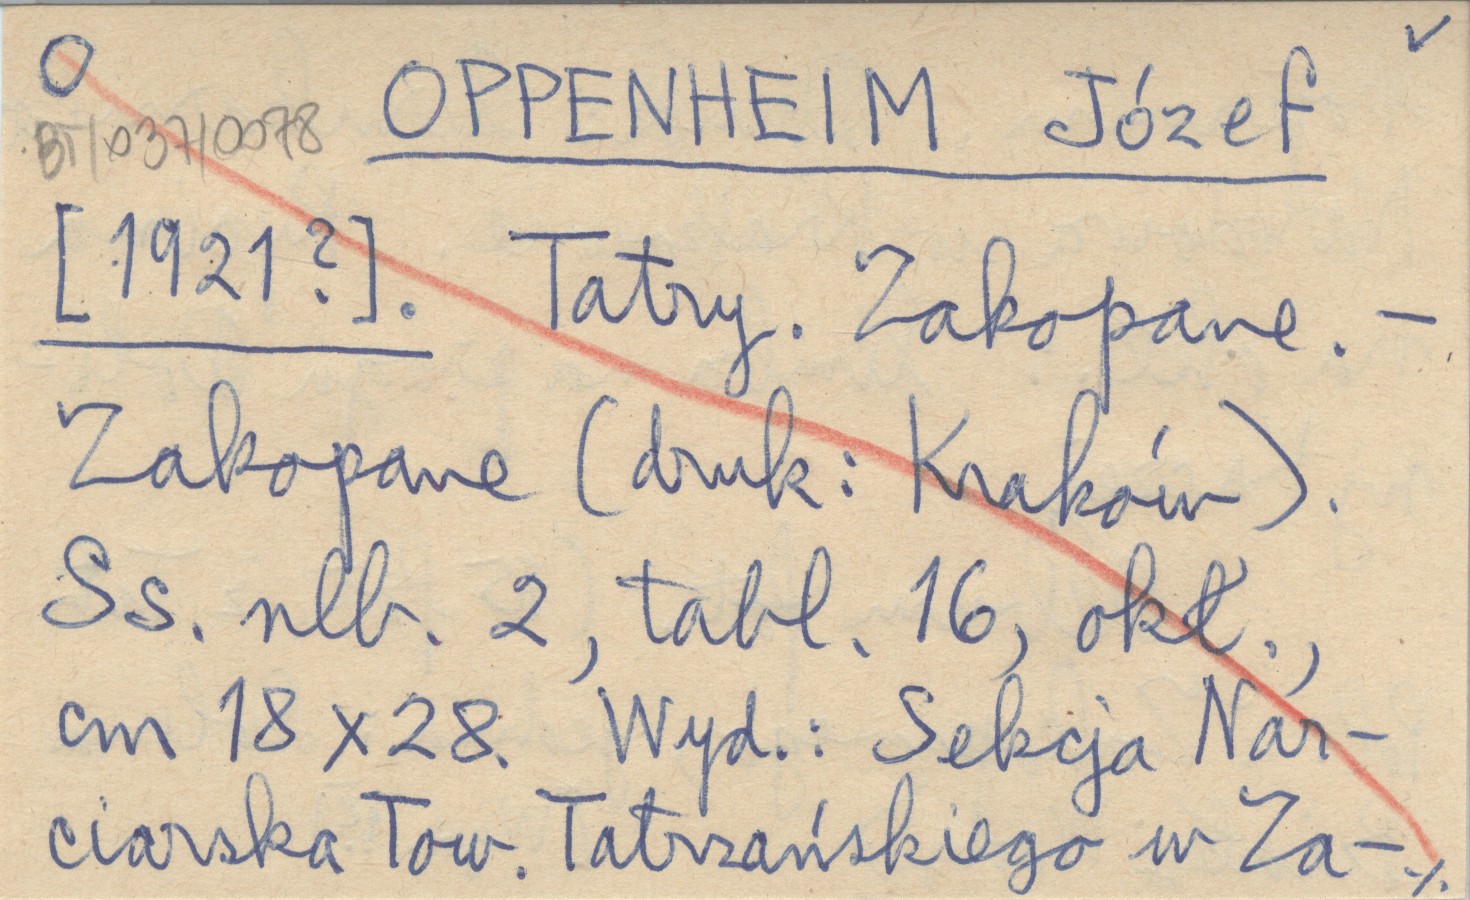 O
✓
BT/037/0078
OPPENHEIM Józef
[1921?]. Tatry. Zakopane. –
Zakopane (druk: Kraków).
Ss. nlb. 2, tabl. 16, okł.,
cm 18 x 28. Wyd.: Sekcja Nar-
ciarska Tow. Tatrzańskiego w Za-
./.